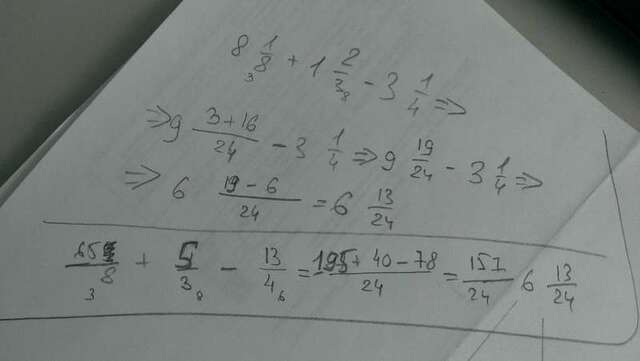 8 1/8 + 1 2/3 - 3 1/4 =>
3 8
=> 9 (3+16)/24 - 3 1/4 => 9 19/24 - 3 1/4 =>
=> 6 (19-6)/24 = 6 13/24
65/8 + 5/3 - 13/4 = (195+40-78)/24 = 157/24 6 13/24
3 8 6